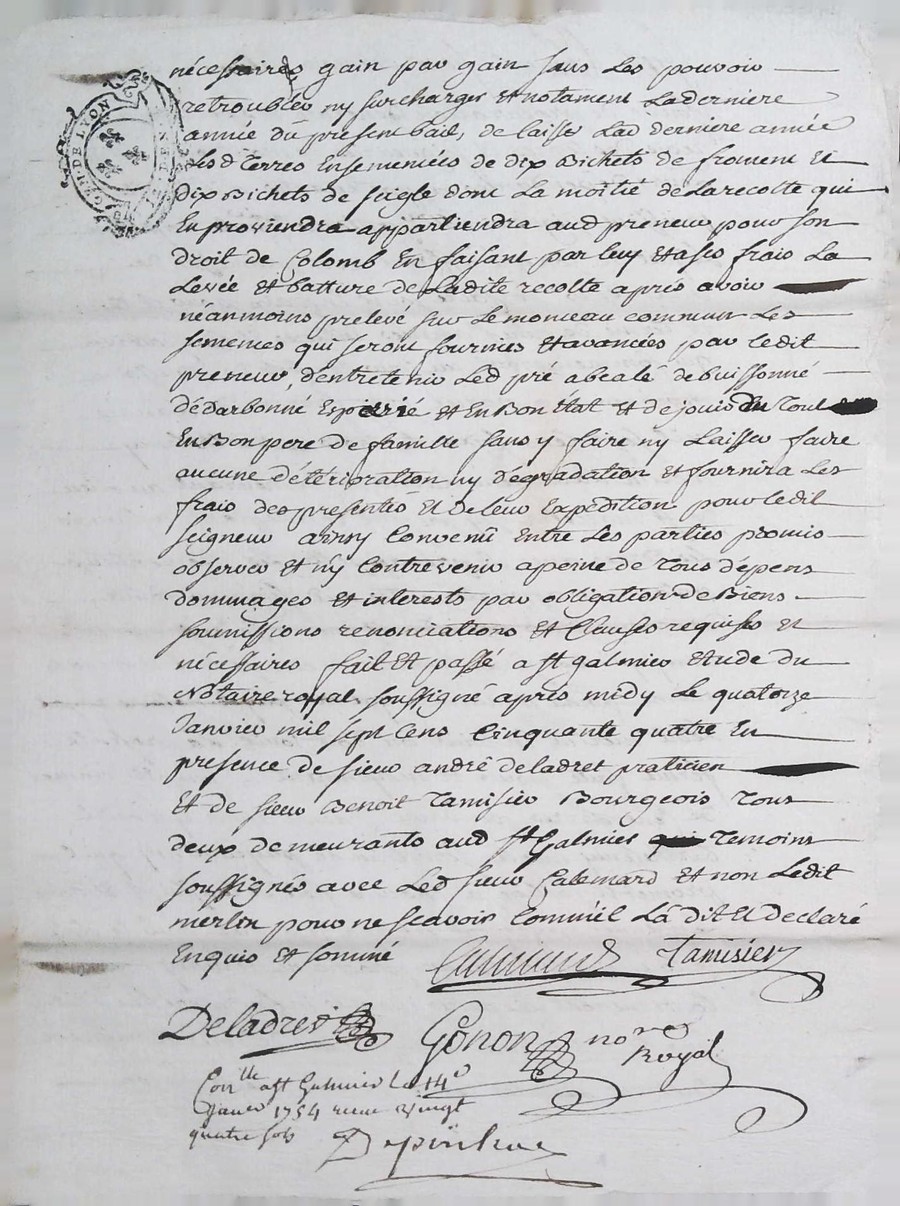 GEN. DE LYON
nécessaires gain par gain sans les pouvoir
retroubler ny surcharger et notament la derniere
année du present bail, de laisser lad derniere année
lesd terres ensemencées de dix bichets de froment et
dix bichets de seigle dont la moitié de la recolte qui
en proviendra appartiendra aud preneur pour son
droit de Colomb en faisant par luy et a ses frais la
levée et batture de ladite recolte apres avoir
néanmoins prelevé sur le monceau commun les
semences qui seront fournies et avancées par ledit
preneur, d'entretenir led pré abealé debuissonné
dédarbonné et en bon état et de jouir du tout
en bon pere de famille sans y faire ny laisser faire
aucune détérioration ny dégradation et fournira les
frais des presentes et de leur expedition pour ledit
seigneur ainsy convenu entre les parties promis
observer et n'y contrevenir a peine de tous dépens
dommages et interests par obligation de biens
soumissions renonciations et clauses requises et
nécessaires fait et passé a st galmier etude du
Notaire royal soussigné apres midy le quatorze
Janvier mil sept cens cinquante quatre en
presence de sieur andré deladret praticien
et de sieur Benoit Tamisier Bourgeois tous
deux demeurants aud st Galmier temoins
soussignés avec led sieur Calemard et non ledit
merlin pour ne scavoir comm'il l'a dit et declaré
enquis et sommé
Tamisier
Deladret Gonon nore
Royal
Conlle a st Galmier le 14e
janer 1754 receu vingt
quatre sols